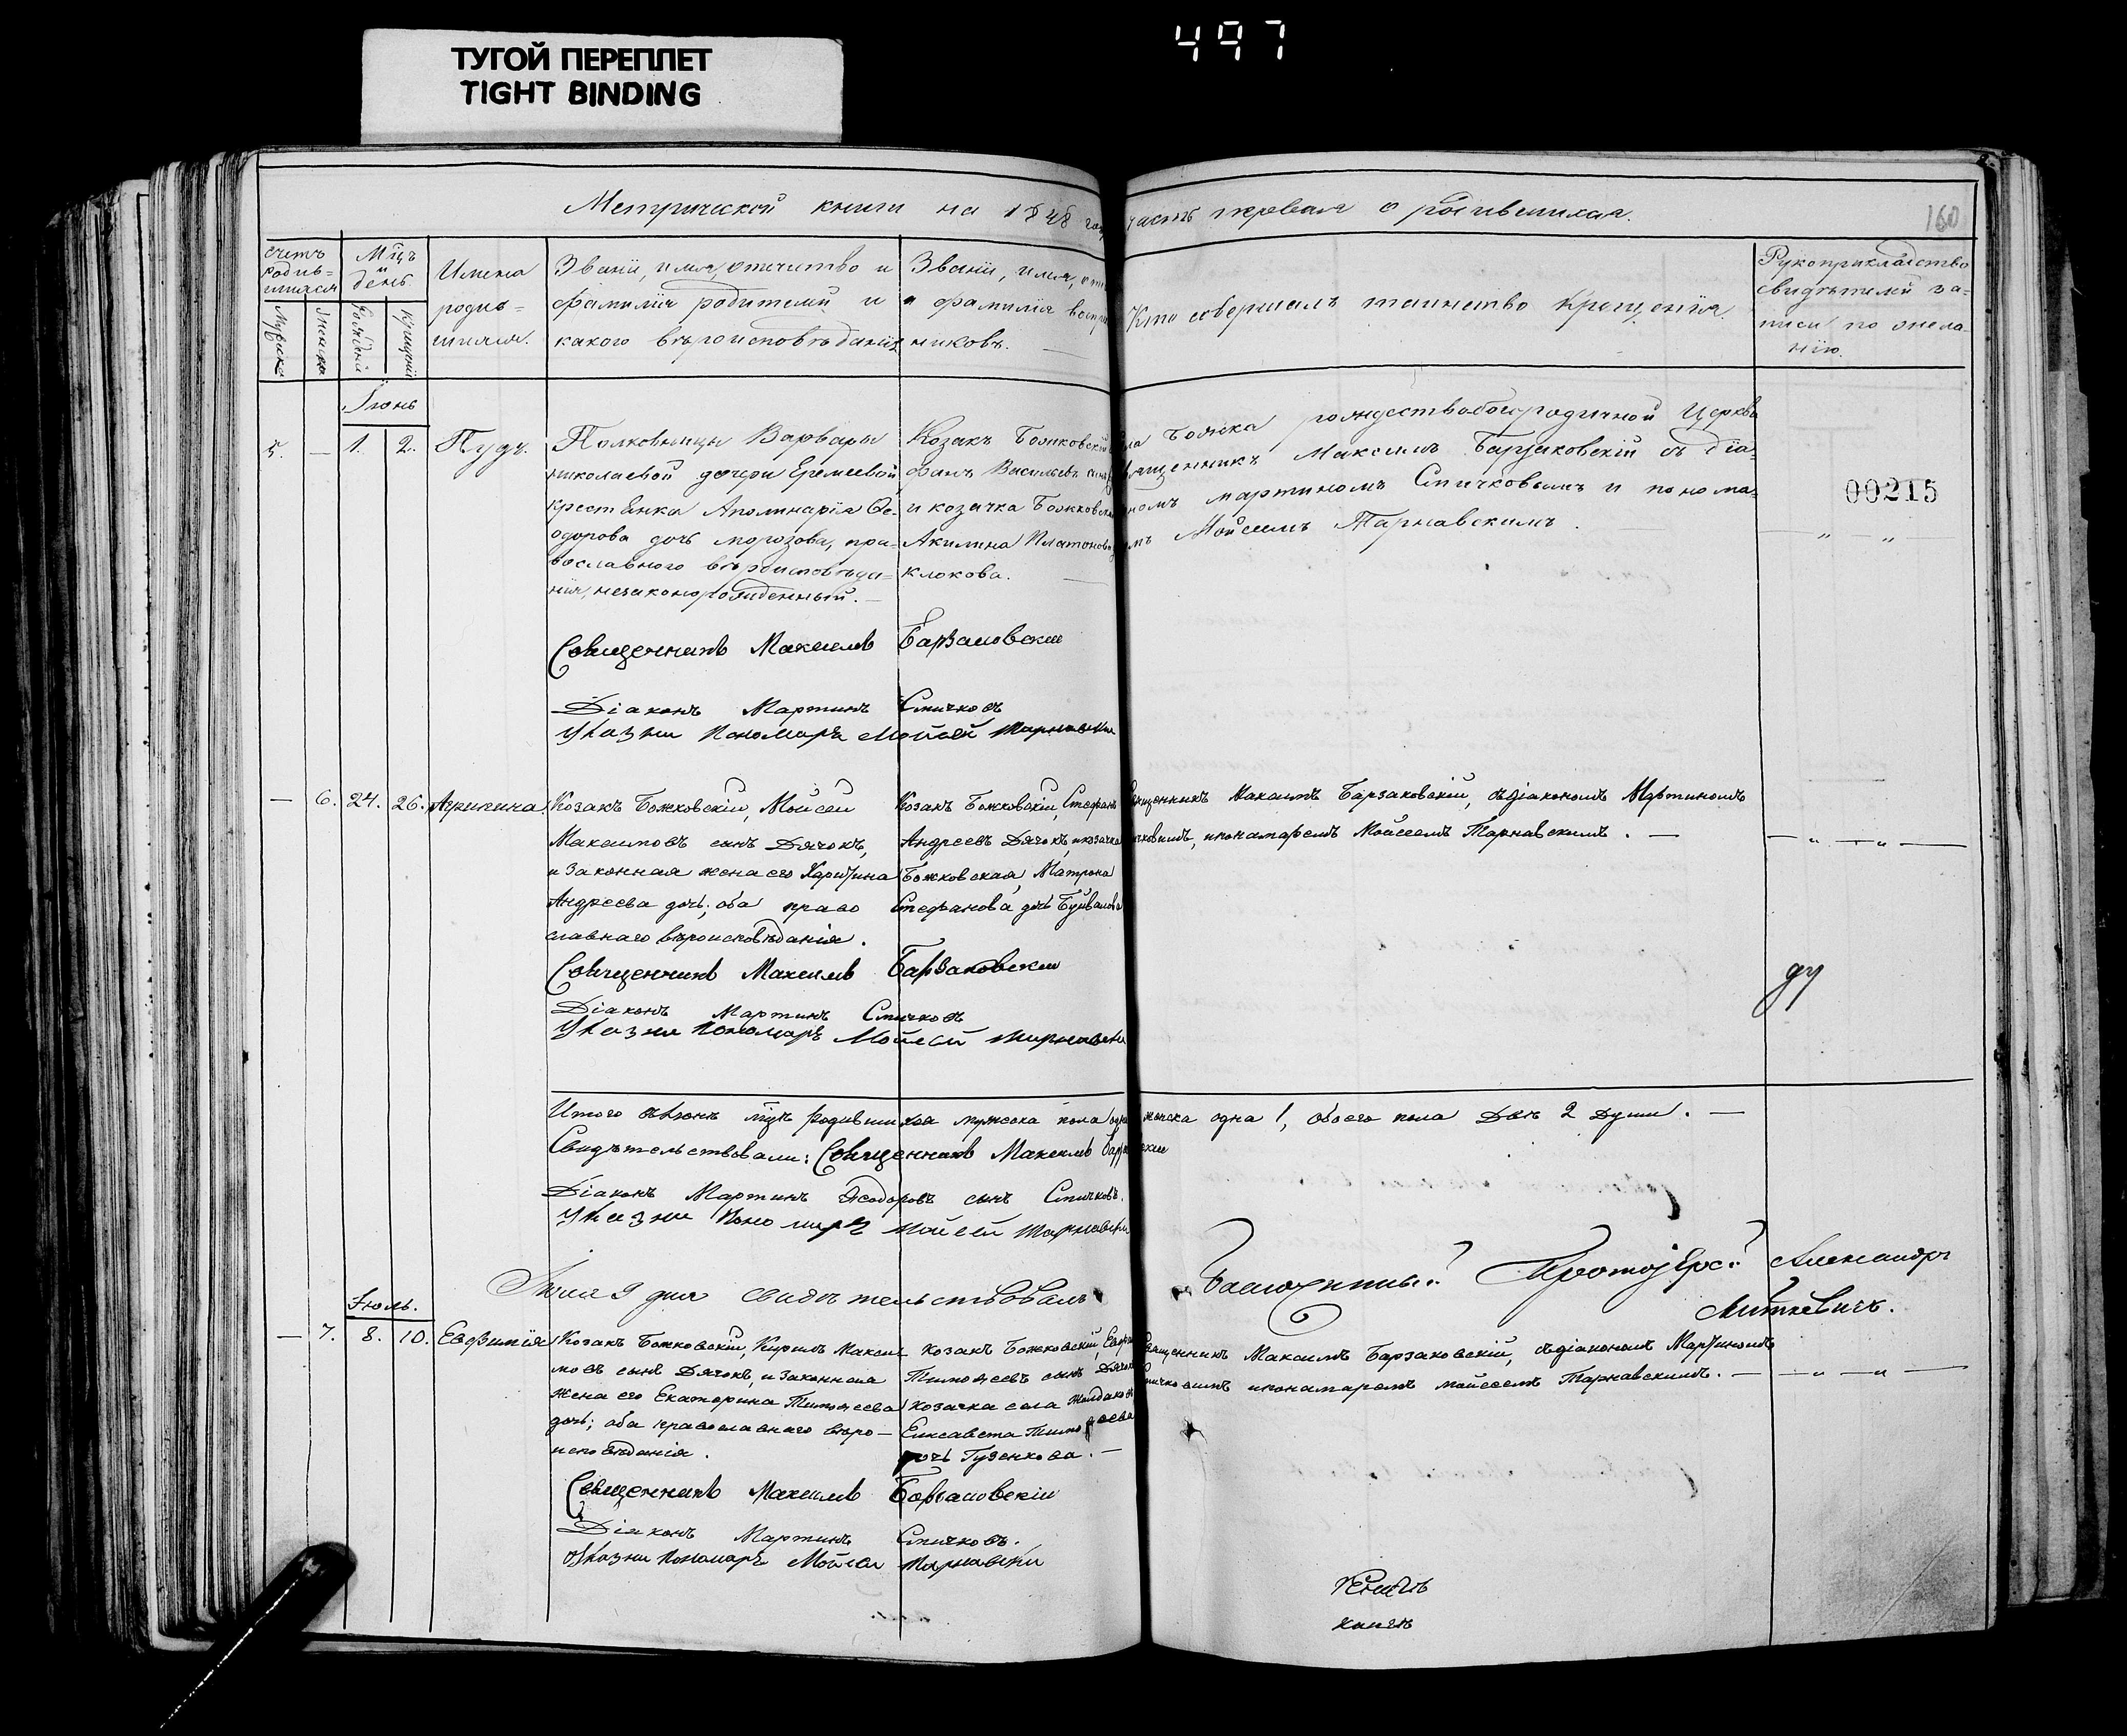 ТУГОЙ ПЕРЕПЛЕТ
TIGHT BINDING
497
Метрической книги на 1848 годъ часть первая о родившихся.
160
Счетъ родив-шихся
Мужеска
Женска
Мцъ и день
Рожденія
Крещенія
Имена родив=шихся.
Званіе, имя, отечество и фамилія родителей и какого вѣроисповѣданія
Званіе, имя, оте и фамилія воспр никовъ.
Кто совершалъ таинство Крещенія.
Рукоприкладство свидѣтелей за-писи по жела-нію.
Іюнь
5. — 1. 2. Пудъ.
Полковницы Варвары
николаевой дочери Еремеевой
крестьянка Аполинарія Ѳе-
одорова дочь морозова, пра-
вославного вѣроисповѣда=
нія, незаконорожденный. —
Козакъ Божковскій
фанъ Васильевъ сынъ
и козачка Божковская
Акилина Платонова
клокова. —
ла Божка рождествобогородичной Церкви
священникъ Максимъ Барзаковскій съ діа-
кономъ мартиномъ Спичковымъ и понома-
мъ Мойсеемъ Тарнавскимъ.
00215
— „ — „ —
Священникъ Максимъ Барзаковскіи
Діаконъ Мартинъ Спичковъ
Указни Пономаръ Мойсей Тарнавски
— 6. 24. 26. Агрипина.
Козакъ Божковскій, Мойсей
Максимовъ сынъ Дячокъ,
и законная жена его Харитина
Андреева дочь; оба право
славнаго вѣроисповѣданія.
Козакъ Божковскій, Стефанъ
Андреевъ Дячокъ, и козачка
Божковская, Матрона
Стефанова дочь Буйвалова
Священникъ Максимъ Барзаковскій, съ діакономъ Мартиномъ
Спичковымъ, и понамаремъ Мойсеемъ Тарнавскимъ. —
— „ — „ —
Священникъ Максимъ Барзаковскіи
Діаконъ Мартинъ Спичковъ
Указни Пономаръ Мойсей Тарнавски
Итого въ Іюнѣ мцѣ родившихся мужеска пола одинъ женска одна 1, обоего пола Двѣ 2 души. —
Свидѣтельствовали: Священникъ Максимъ Барзаковскіи
Діаконъ Мартинъ Ѳеодоровъ сынъ Спичковъ.
Указни Пономаръ Мойсей Тарнавски
Іюля 9 дня свидѣтельствовалъ Благочинный Протоіерей Александръ
Литкевичъ.
Іюль.
— 7. 8. 10. Евфимія
Козакъ Божковскій, Кирилъ Макси-
мовъ сынъ Дячокъ, и законная
жена его Екатерина Тимоѳеева
дочь; оба православнаго вѣро-
исповѣданія.
Козакъ Божковскій,
Тимоѳеевъ сынъ Дячокъ
козачка села
Елисавета Тимоѳеева
дочь Гузенкова. —
Священникъ Максимъ Барзаковскій, съ діакономъ Мартиномъ
Спичковимъ и понамаремъ Мойсеемъ Тарнавскимъ. —
— „ — „
Священникъ Максимъ Барзаковскіи
Діаконъ Мартинъ Спичковъ.
Указни Пономаръ Мойсей Тарнавски